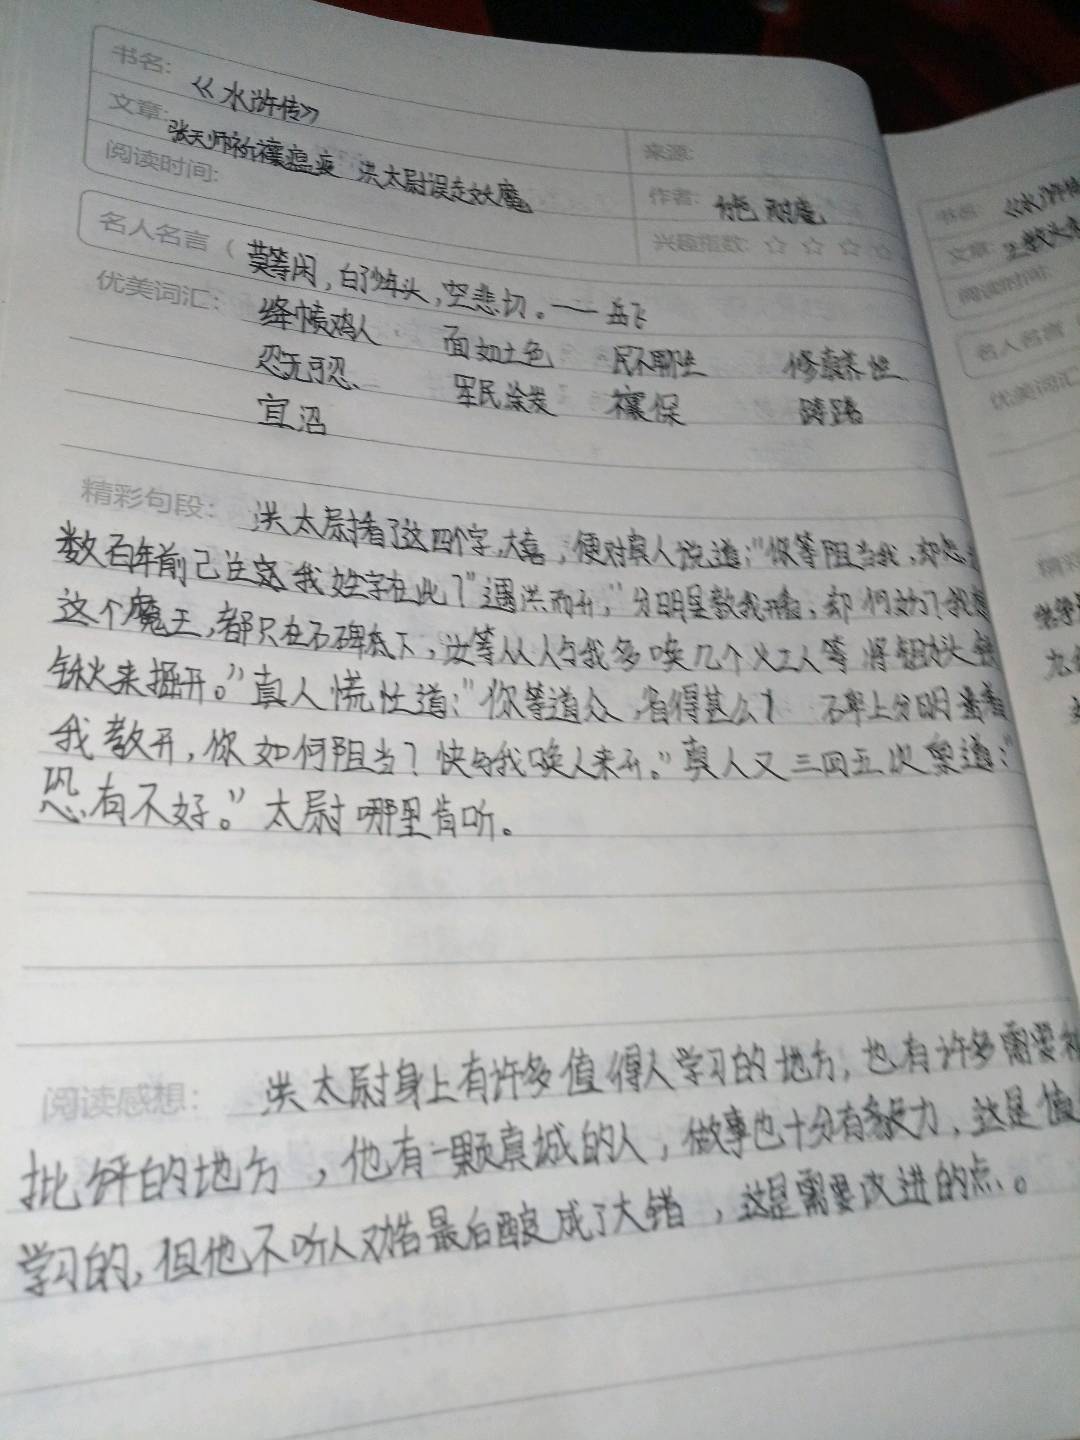 书名: 《水浒传》
文章: 张天师祈禳瘟疫 洪太尉误走妖魔
来源:
阅读时间:
作者: 施耐庵
兴趣指数: ☆ ☆ ☆ ☆
名人名言（ 莫等闲，白了少年头，空悲切。——岳飞
优美词汇: 绛帻鸡人 面如土色 民不聊生 修真养性
忍无可忍 军民涂炭 禳保 踌躇
宣诏
精彩句段: 洪太尉看了这四个字,大喜，便对真人说道："你等阻当我,却怎
数百年前已注定我姓字在此？"遇洪而开，"分明是教我开看，却何妨？我想
这个魔王，都只在石碑底下，汝等从人与我多唤几个火工人等将锄头铁
锹来掘开。"真人慌忙道："你等道众，省得甚么！ 石碑上分明凿着
我教开，你如何阻当？快与我唤人来开。"真人又三回五次禀道："
恐有不好。"太尉哪里肯听。
阅读感想: 洪太尉身上有许多值得人学习的地方，也有许多需要
批评的地方，他有一颗真诚的人，做事也十分有毅力，这是值
学习的，但他不听人劝告最后酿成了大错，这是需要改进的点。
书名: 《水浒传
文章: 王教头
阅读时间:
名人名言
优美词汇
精彩